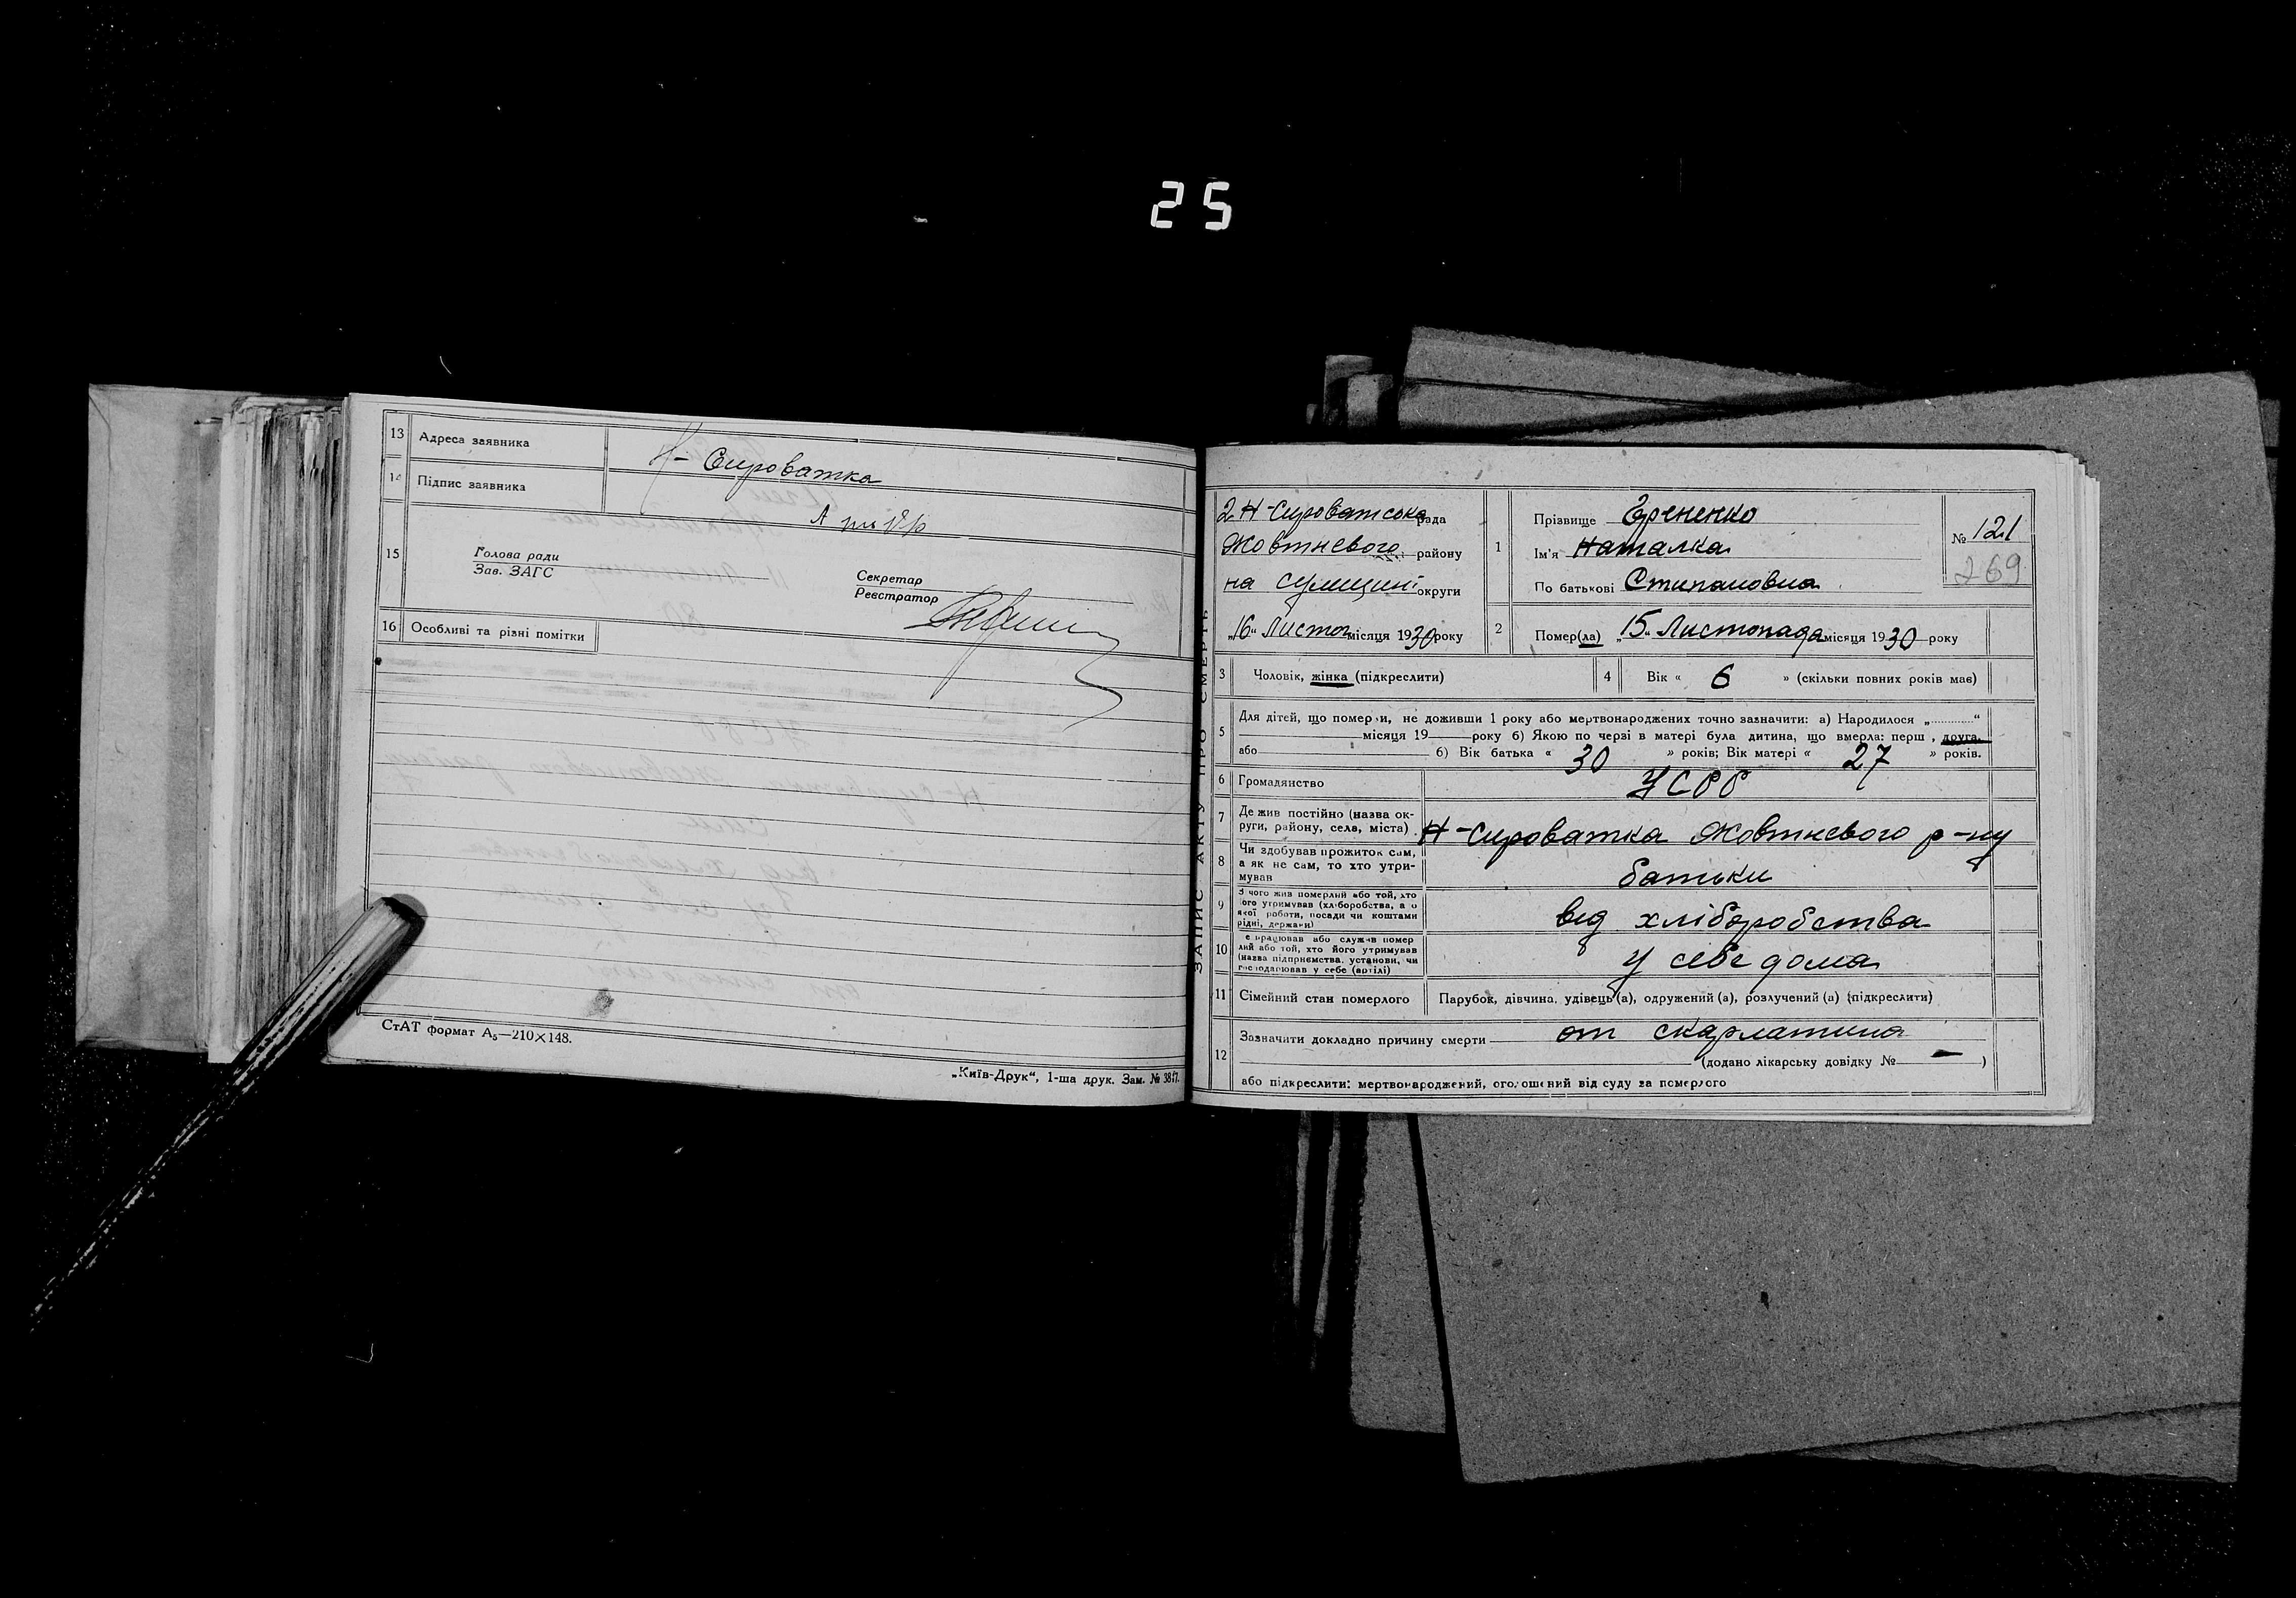 25
13 Адреса заявника
Н- Сироватка
14 Підпис заявника
15
Голова ради
Зав. ЗАГС
Секретар
Реєстратор
16 Особливі та різні помітки
СтАТ формат А₅—210×148.
„Київ-Друк“, 1-ша друк. Зам. №
ЗАПИС АКТУ ПРО СМЕРТЬ
2 Н-Сироватська рада
Жовтневого району
на Сумщині округи
„16“ Листоп місяця 1930 року
1 Прізвище Єрененко
Ім'я Наталка
По батькові Стипановна
№ 121
269
2 Помер(ла) „15“ Листопада місяця 1930 року
3 Чоловік, жінка (підкреслити)
4 Вік « 6 » (скільки повних років має)
5 Для дітей, що померли, не доживши 1 року або мертвонароджених точно зазначити: а) Народилося „ “
місяця 19 року б) Якою по черзі в матері була дитина, що вмерла: перш , друга
або б) Вік батька « 30 » років; Вік матері « 27 » років.
6 Громадянство УСРР
7 Де жив постійно (назва ок-
руги, району, села, міста)
Н-Сироватка Жовтневого р-ну
8 Чи здобував прожиток сам,
а як не сам, то хто утри-
мував
батьки
9 З чого жив померлий або той, хто
його утримував (хліборобства, а о
якої роботи, посади чи коштами
рідні, держави)
від хліборобства
10 е працював або служив помер
лий або той, хто його утримував
(назва підприємства, установи, чи
господарював у себе (артілі)
у себе дома
11 Сімейний стан померлого Парубок, дівчина, удівець(а), одружений(а), розлучений (а) (підкреслити)
12 Зазначити докладно причину смерти от скарлатина
(додано лікарську довідку № — )
або підкреслити: мертвонароджений, оголошений від суду за померлого